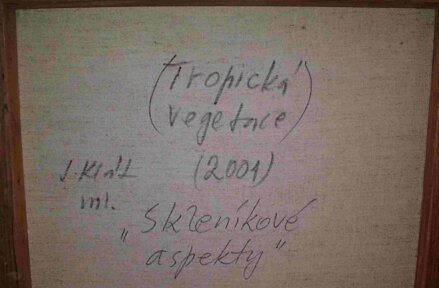 (Tropická
vegetace)
(2001)
J. Král
ml.
„Skleníkové
aspekty"